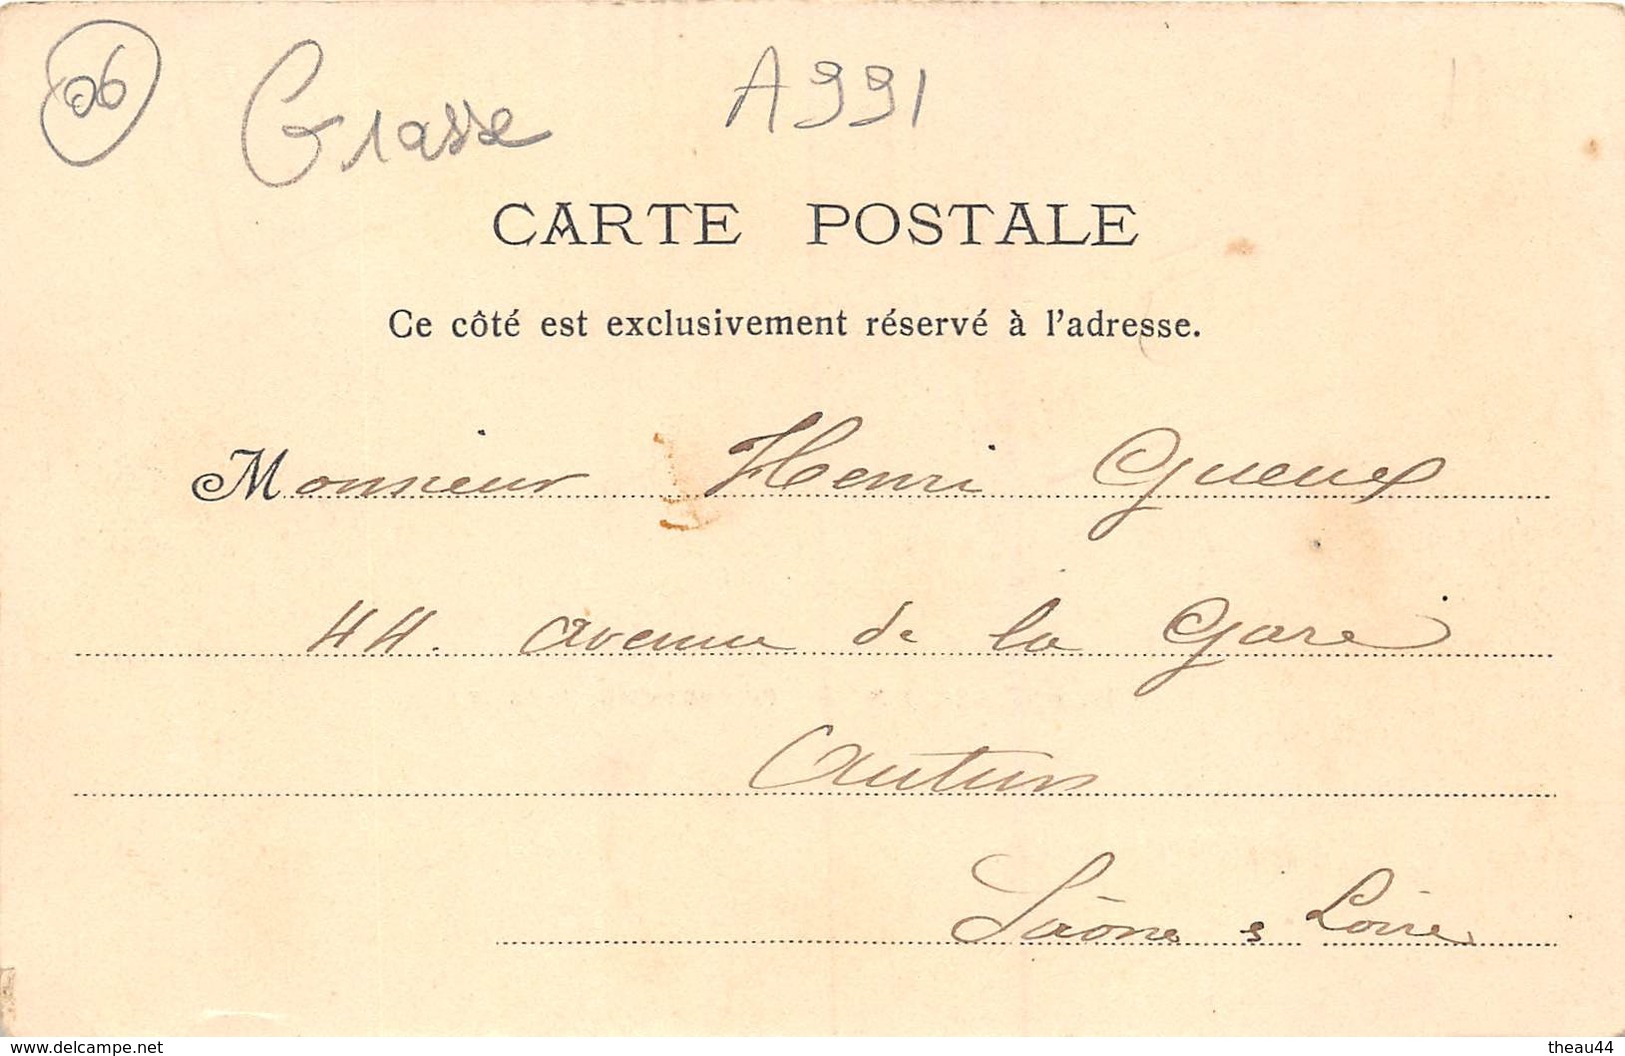 06 Grasse A991
CARTE POSTALE
Ce côté est exclusivement réservé à l'adresse.
Monsieur Henri Gueux
44. avenue de la Gare
Autun
Saône & Loire
www.delcampe.net theau44